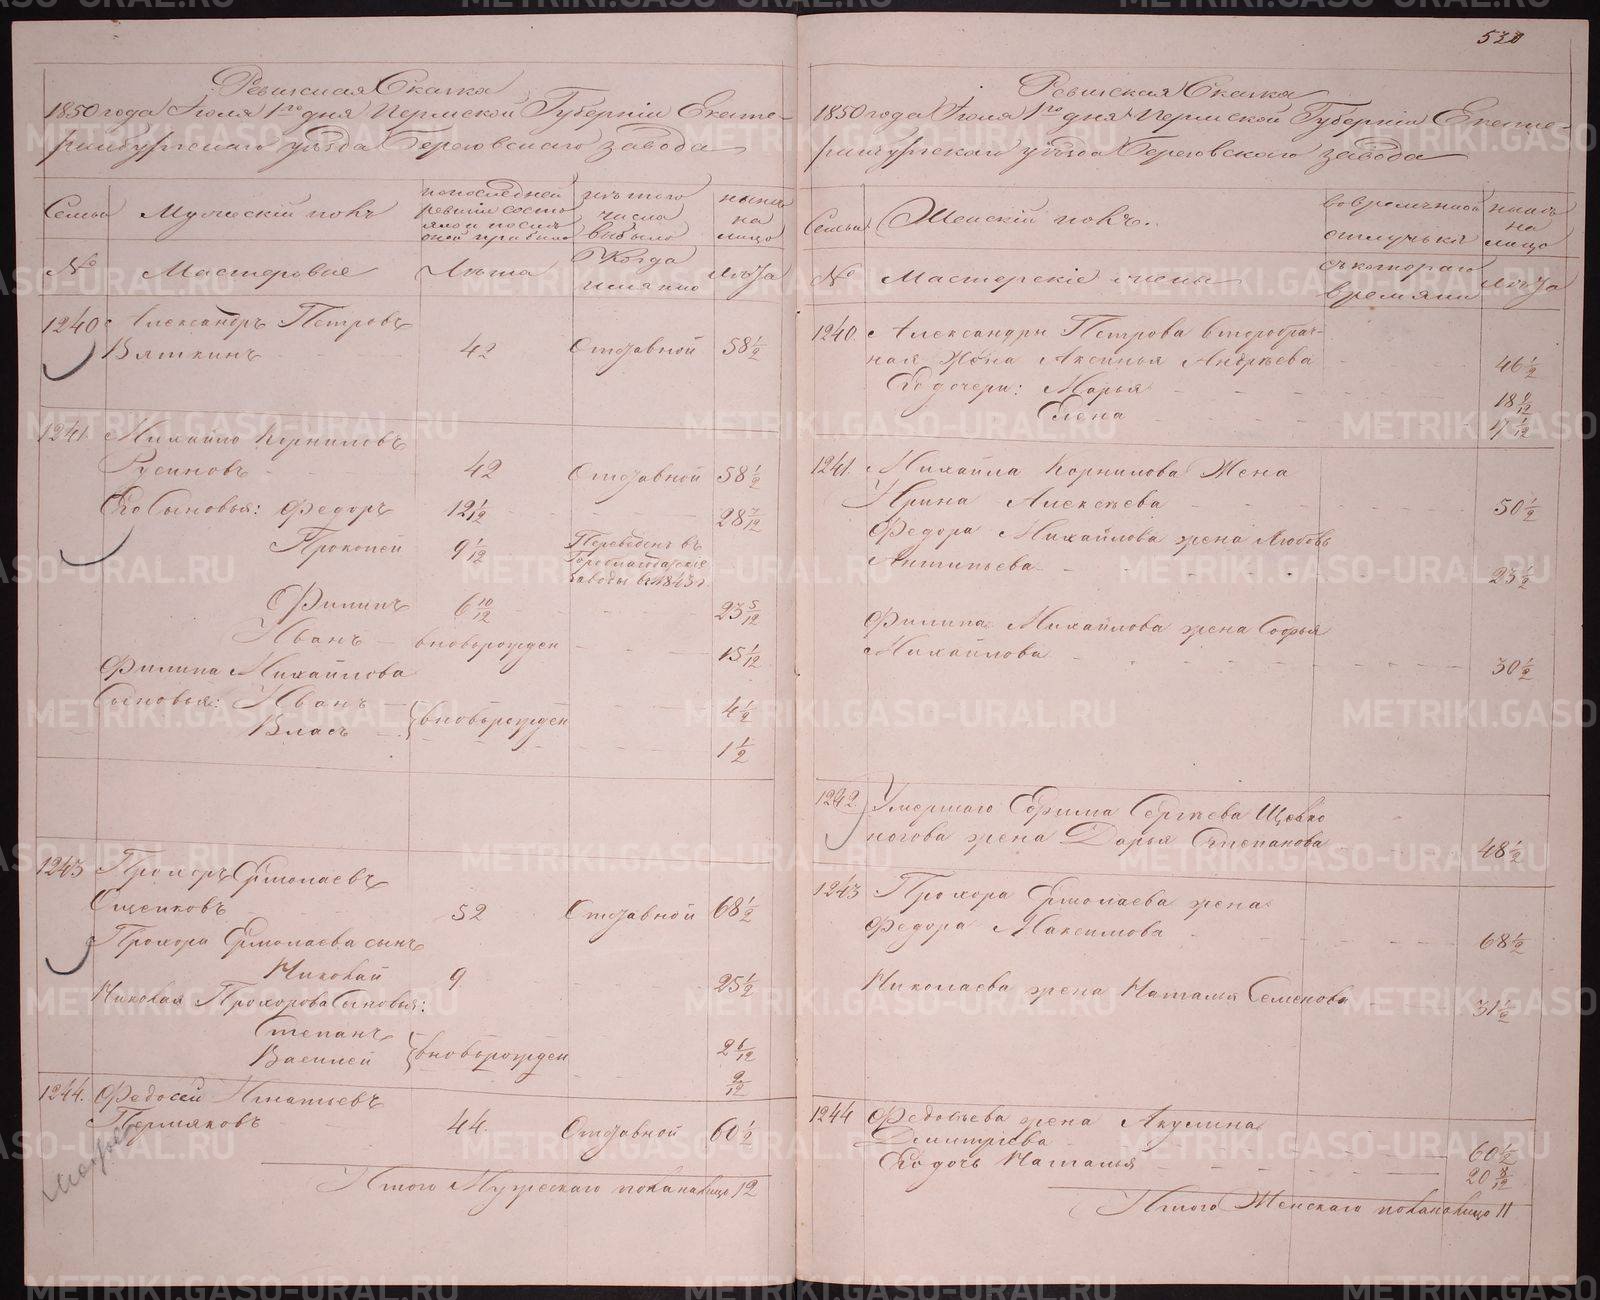 530
Ревизская Сказка
1850 года Июля 1го дня Пермской Губернiи Екате-
ринбургскаго уѣзда Березовскаго завода
Семьи
Мужескiй полъ
по последней ревизiи состо яло и после оной прибыло
изъ того числа выбыло
ныне на лицо
№
Мастеровые
Лѣта
Когда имянно
лѣта
1240 Александръ Петровъ
Вяткинъ 42 Отставной 58 1/2
1241 Михайло Корниловъ
Русиновъ 42 Отставной 58 1/2
Его Сыновья: Федоръ 12 1/2 28 7/12
Прокопей 9 1/12 Переведенъ въ
заводы в 1843 г
Филипъ 6 10/12 23 5/12
Иванъ вновьрожден 15 1/12
Филипа Михайлова
Сыновья: Иванъ вновьрожден 4 1/2
Власъ 1 1/2
1243 Прохоръ Ермолаевъ
52 Отставной 68 1/2
Прохора Ермолаева сынъ
Николай 9 25 1/2
Николая Прохорова Сыновья:
Степанъ вновьрожден 2 6/12
Василей 9/12
1244. Федосей Игнатьевъ
Пермяковъ 44 Отставной 60 1/2
Итого Мужескаго пола на лицо 12
Ревизская Сказка
1850 года Июля 1го дня Пермской Губернiи Екате-
ринбургскаго уѣзда Березовскаго завода
Семьи
Женскiй полъ.
во временной отлучькѣ
ныне на лицо
№
Мастерскiе жены
съ котораго времяни
лѣта
1240. Александра Петрова второбрач-
ная Жена Аксинья Андрѣева 46 1/2
Его дочери: Марья 18 9/12
Елена 17 1/12
1241. Михайла Корнилова Жена
Ирина Алексѣева 50 1/2
Федора Михайлова жена Любовь
Антипьева 23 1/2
Филипа Михайлова жена Софья
Михайлова 30 1/2
1242. Умершаго Ефима Сергѣева Щевко
ногова жена Дарья Степанова 48 1/2
1243 Прохора Ермолаева жена
Федора Максимова 68 1/2
Николаева жена Наталья Семенова 31 1/2
1244 Федосьева жена Акулина
Дмитрiева 60 1/2
Его дочь Наталья 20 8/12
Итого Женскаго пола на лицо 11
METRIKI.GASO-URAL.RU